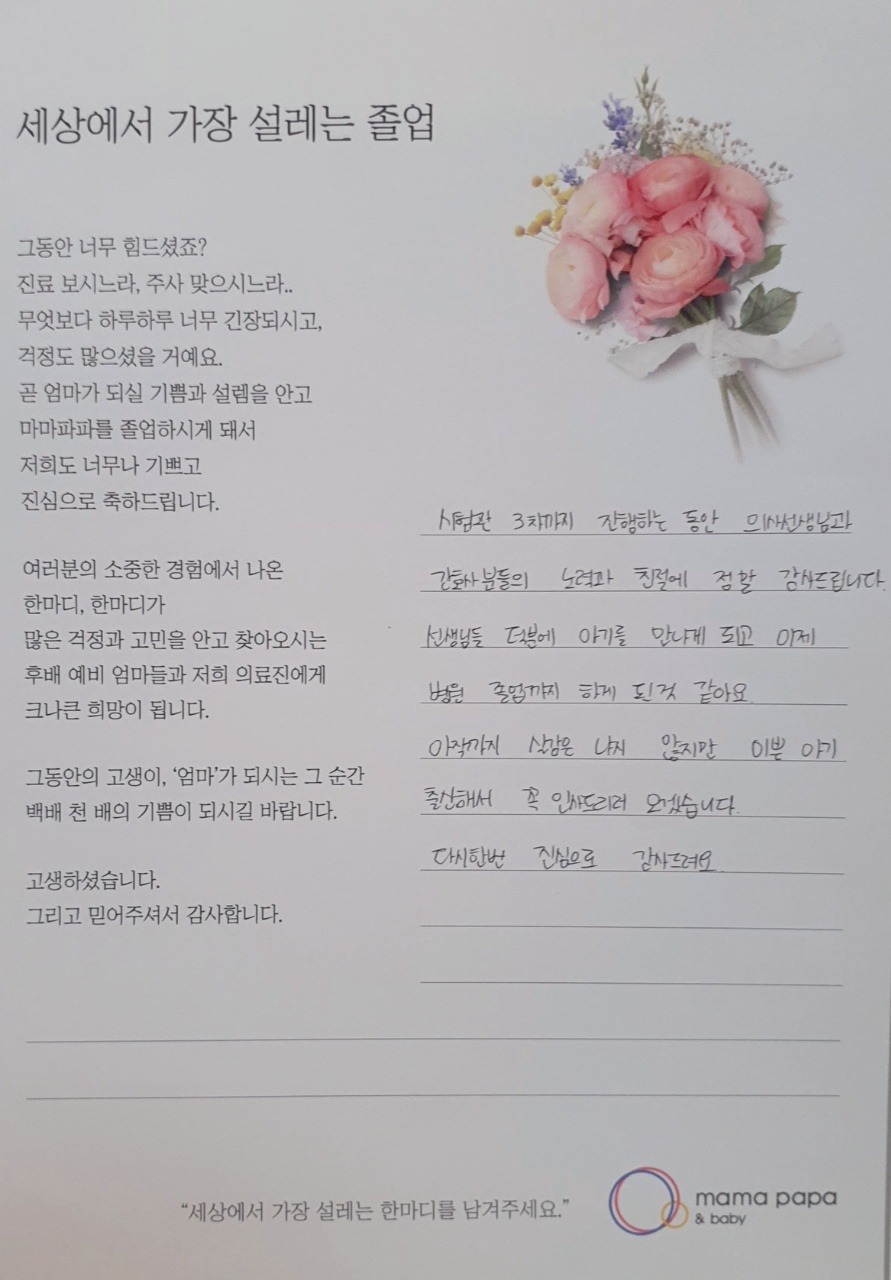 세상에서 가장 설레는 졸업
그동안 너무 힘드셨죠?
진료 보시느라, 주사 맞으시느라..
무엇보다 하루하루 너무 긴장되시고,
걱정도 많으셨을 거예요.
곧 엄마가 되실 기쁨과 설렘을 안고
마마파파를 졸업하시게 돼서
저희도 너무나 기쁘고
진심으로 축하드립니다.
여러분의 소중한 경험에서 나온
한마디, 한마디가
많은 걱정과 고민을 안고 찾아오시는
후배 예비 엄마들과 저희 의료진에게
크나큰 희망이 됩니다.
그동안의 고생이, ‘엄마’가 되시는 그 순간
백배 천 배의 기쁨이 되시길 바랍니다.
고생하셨습니다.
그리고 믿어주셔서 감사합니다.
시험관 3차까지 진행하는 동안 의사선생님과
간호사분들의 노력과 친절에 정말 감사드립니다.
선생님들 덕분에 아기를 만나게 되고 이제
병원 졸업까지 하게 된것 같아요
아직까지 실감은 나지 않지만 이쁜 아기
출산해서 꼭 인사드리러 오겠습니다.
다시한번 진심으로 감사드려요.
“세상에서 가장 설레는 한마디를 남겨주세요.”
mama papa
& baby